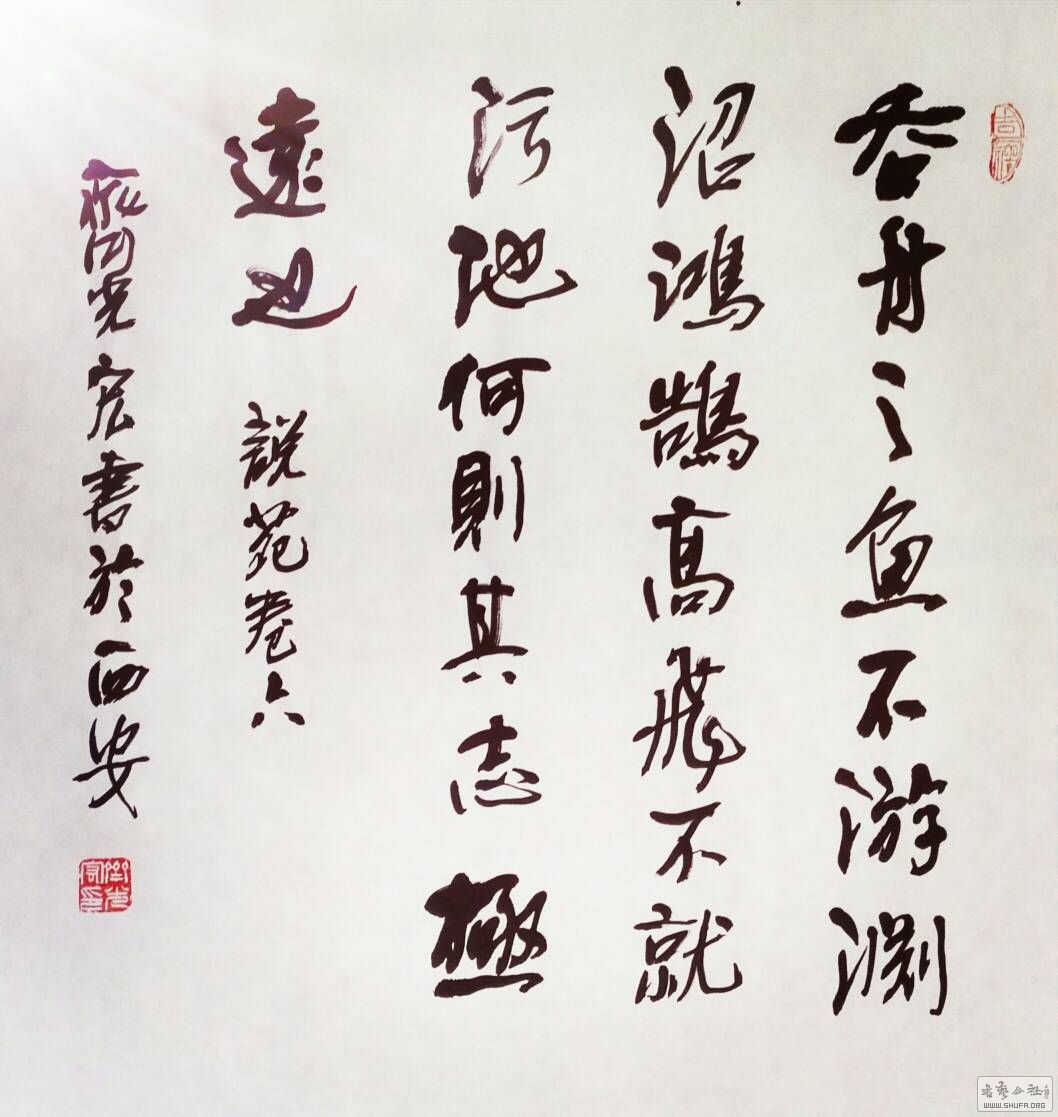 吞舟之魚不游淵
沼鴻鵠高飛不就
污池何則其志極
遠也
說苑卷六
齊光宏書於西安
吉祥
WWW.SHUFA.ORG